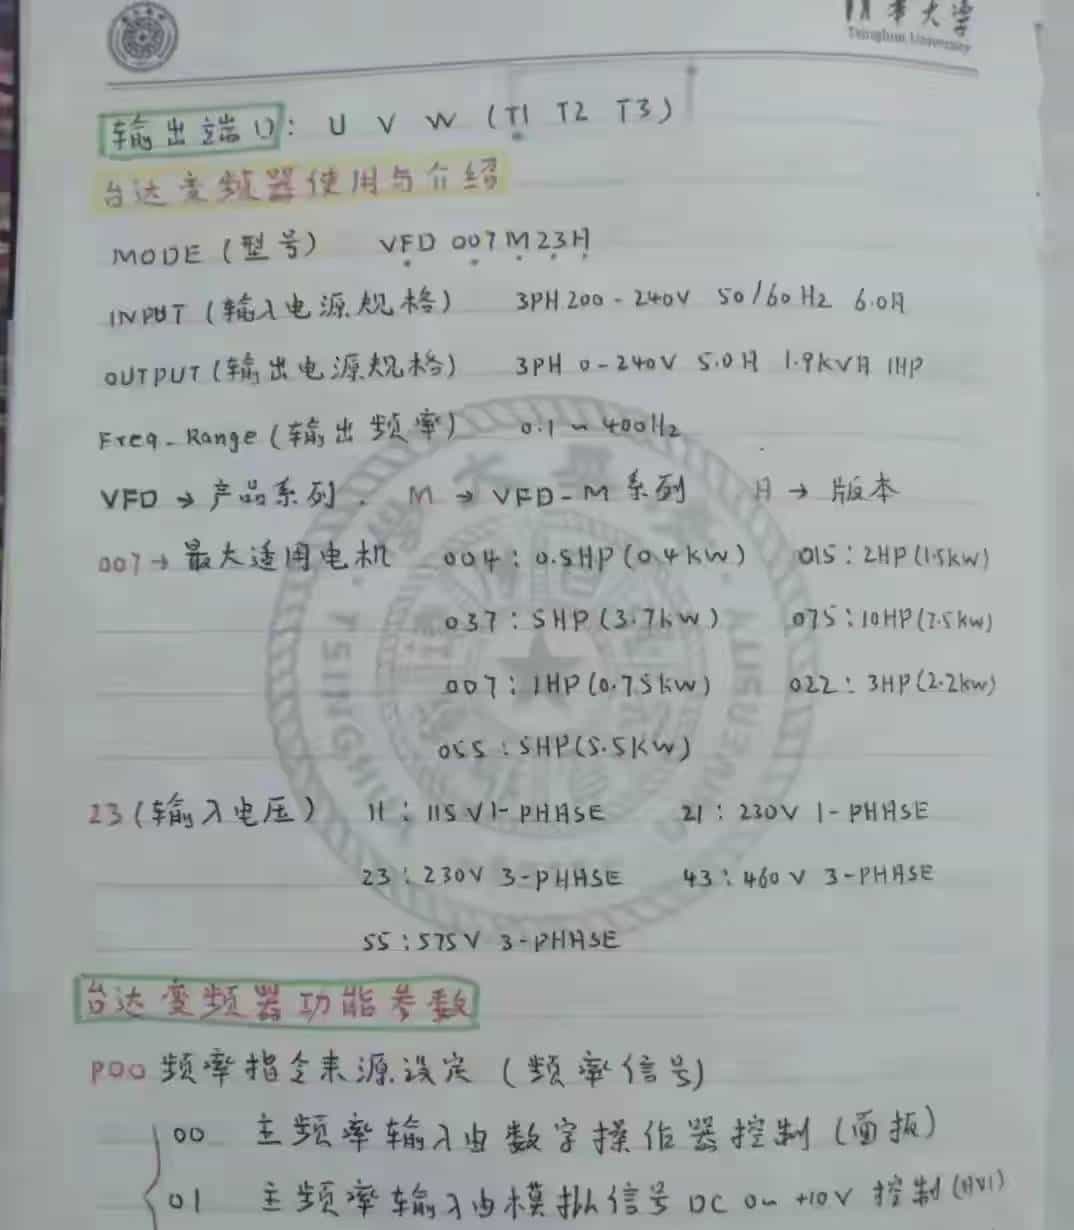 清华大学
Tsinghua University
输出端口: U V W (T1 T2 T3)
台达变频器使用与介绍
MODE (型号) VFD 007M23A
INPUT (输入电源规格) 3PH 200-240V 50/60Hz 6.0A
OUTPUT (输出电源规格) 3PH 0-240V 5.0A 1.9KVA 1HP
Freq-Range (输出频率) 0.1~400Hz
VFD → 产品系列. M → VFD-M系列 A → 版本
007 → 最大适用电机 004: 0.5HP(0.4kw) 015: 2HP(1.5kw)
037: 5HP(3.7kw) 075: 10HP(7.5kw)
007: 1HP(0.75kw) 022: 3HP(2.2kw)
055: 5HP(5.5kw)
23 (输入电压) 11: 115V 1-PHASE 21: 230V 1-PHASE
23: 230V 3-PHASE 43: 460V 3-PHASE
55: 575V 3-PHASE
台达变频器功能参数
P00 频率指令来源设定 (频率信号)
00 主频率输入由数字操作器控制(面板)
01 主频率输入由模拟信号DC 0~+10V 控制(AVI)
TSINGHUA UNIVERSITY